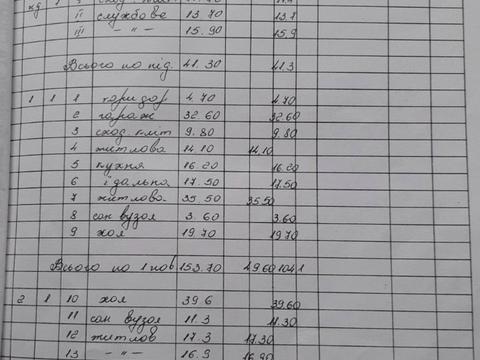 кд
II службове 13.70 13.7
III —"— 15.90 15.9
Всього по під. 41.30 41.3
1 1 1 коридор 4.70 4.70
2 гараж 32.60 32.60
3 сход. кліт 9.80 9.80
4 житлова 14.10 14.10
5 кухня 16.20 16.20
6 їдальна 17.50 17.50
7 житлова 35.50 35.50
8 сан вузол 3.60 3.60
9 хол 19.70 19.70
Всього по 1 пов 153.70 49.60 104.1
2 1 10 хол 39.6 39.60
11 сан вузол 11.3 11.30
12 житлов 17.3 17.30
13 —"— 16.9 16.90